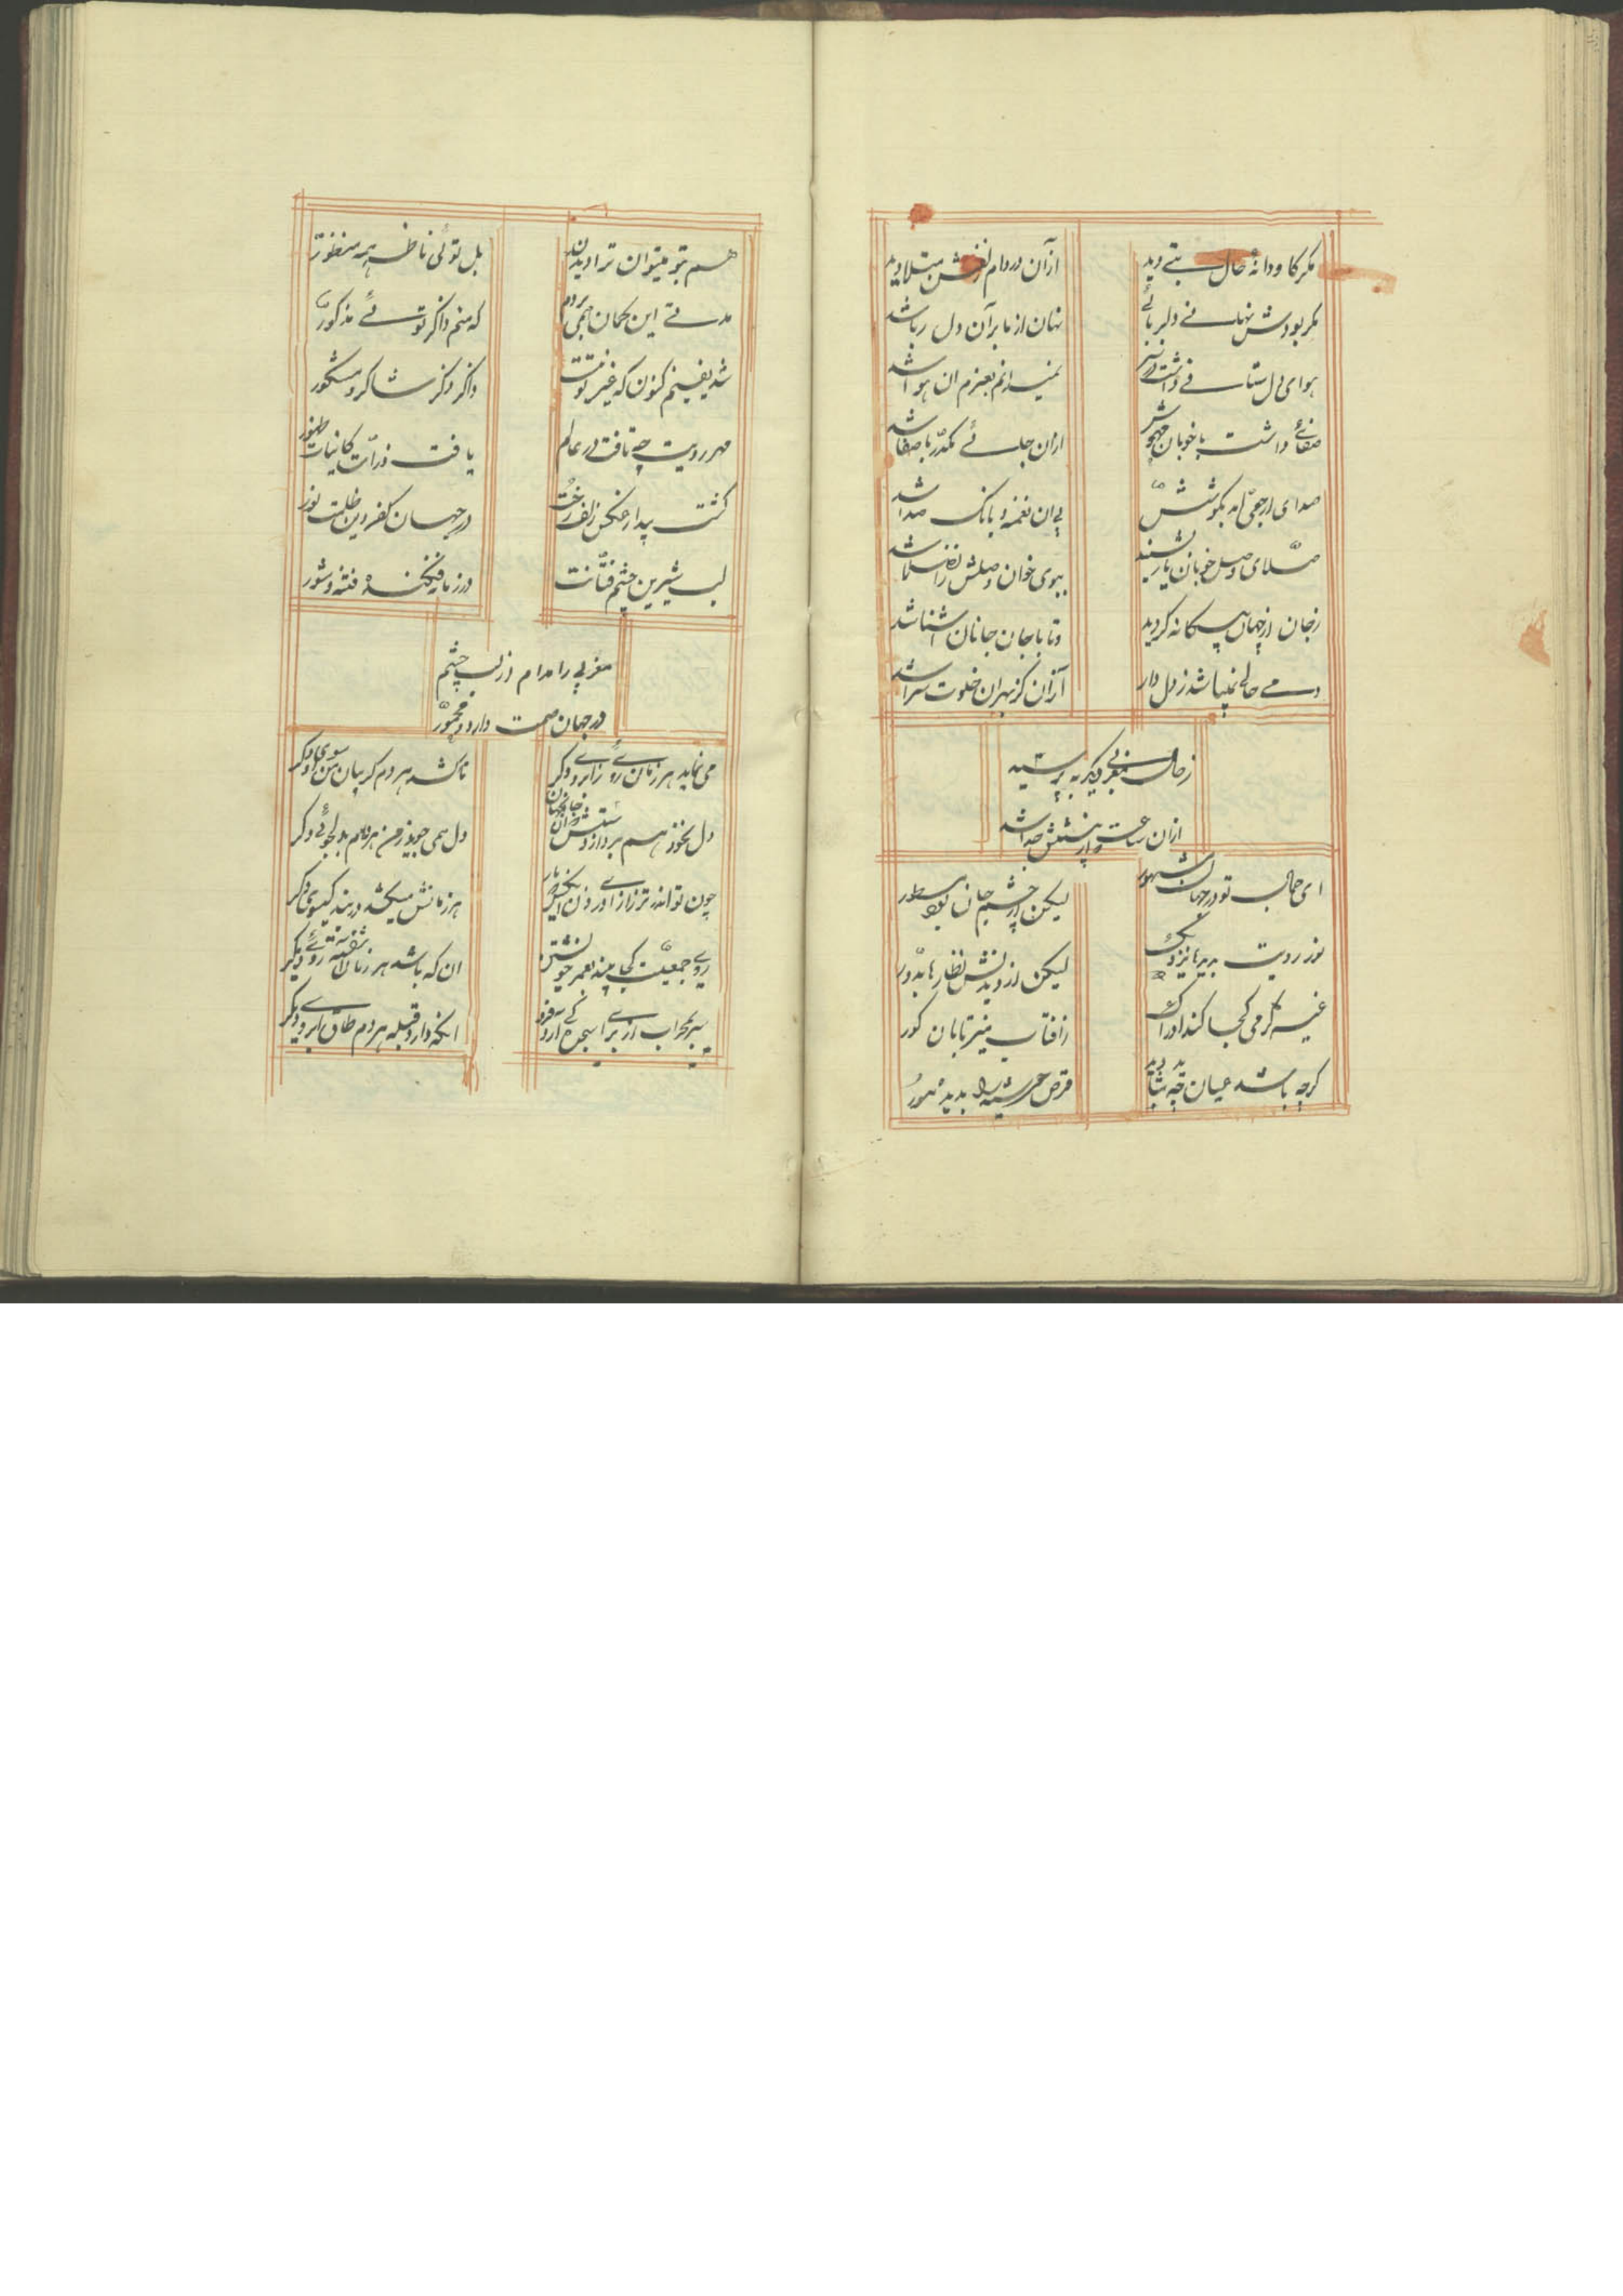 مکر کاو دانهٔ خال بتے دید
ازان در دام زلفش مبتلا دید
مکر بودش نهانے دلربائے
نهان از ما بر آن دل ربا شد
هوای دلستانے داشت در سر
نمیدانم بعزم ان هوا شد
صفائے داشت با خوبان مهوش
ازان جائے مکدّر با صفا شد
صدای ارجعی امد بکوشش
پی ان نغمه و بانک صدا شد
صلّای وصل خوبان یار بشنید
ببوی خوان وصلش زان صلا شد
ز جان از جهان بیکانه کردید
و تا با جان جانان اشنا شد
دمے خالے نمیباشد ز دل دار
ازان کز بهر ان خلوت سرا شد
ز حال مغربی دیکر مپرسید
ازان ساعت و از پیشش جدا شد
ای جمال تو در جهان مشهور
لیکن از چشم جان بود مستور
نور رویت بدیدها نزدیک
لیکن از دیدنش نظرها بدّور
غیر کرمی کجا کند ادراک
ز افتاب منیر تابان کور
کرچه باشد عیان چه شاید دید
قرص خورشید را بدیده مور
هم بتو میتوان ترا دیدن
بل توئی ناظر همه منظور
مدتے این کمان همی بردم
که منم ذاکر توئے مذکور
شد یقینم کنون که غیر تو نیست
ذاکر و ذکر شاکر و مشکور
مهر رویت چه تافت در عالم
یافت ذرّات کاینات ظهور
کشت پیدا ز عکس زلف و رخت
در جهان کفر و دین ظلمت نور
لب شیرین چشم فتّانت
در زمانه فکنده فتنه و شور
مغربی را مدام از لب چشم
در جهان مست دارد و مخمور
می نماید هر زمان روئے ز ابروی دکر
تا کشد هر دم کریبان من سوی دکر
دل نخواهم برد از دستش
دل همی جوید ز من هر دم بدلجوئی دکر
چون تواند ترازا اوردن
هر زمانش میکشد در بند کیسوی دکر
روے جمعیّت کجا بیند بعمر خویشتن
ان که باشد هر زمان اشفته روئے دیکر
سر بمحراب از براے سجده کے ارد فرو
انکه دارد قبله هر دم طاق ابروے دیکر